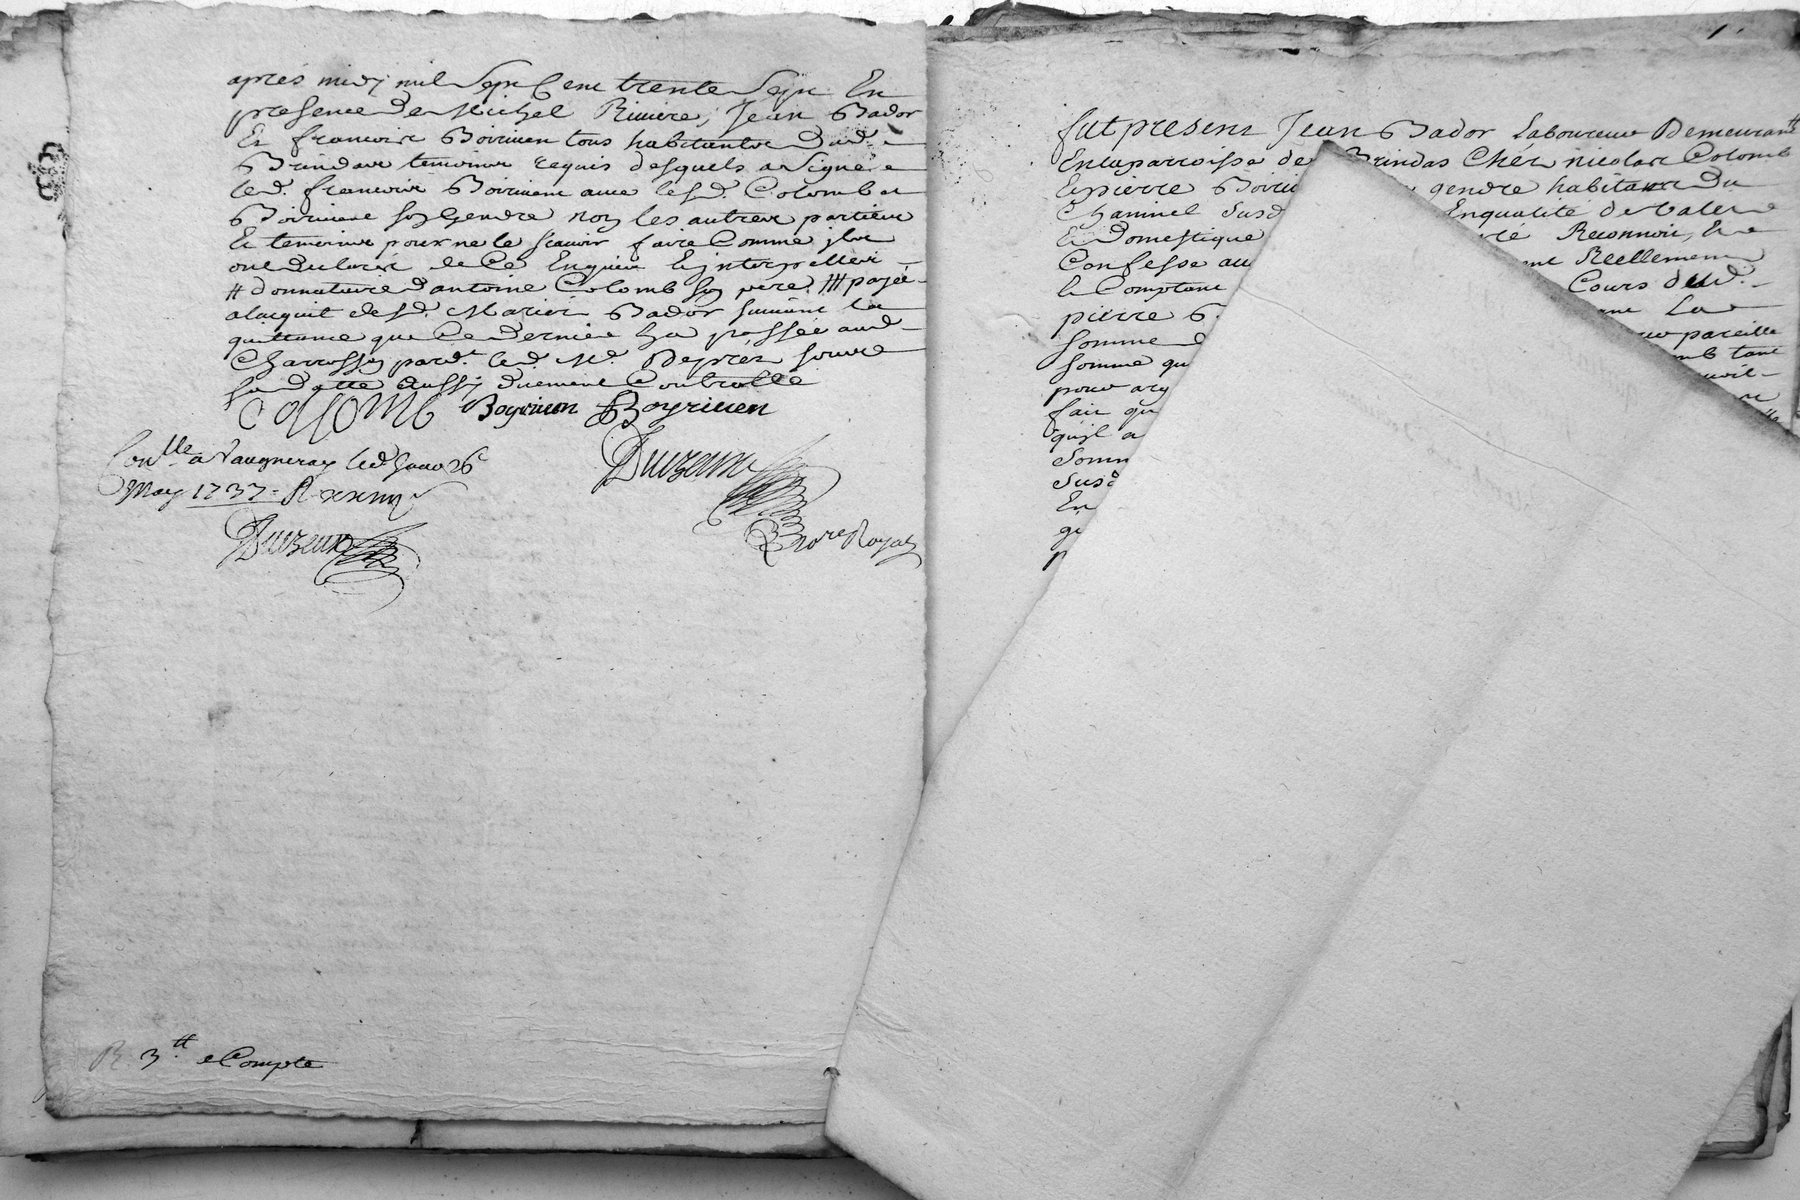 après midy mil Sept Cent trente Sept En
presence de Michel Riviere, Jean Bador
Et francois Boiriven tous habitants dud.
Brindas temoins requis desquels a Signé
led. francois Boiriven avec lesd. Colomb et
Boiriven son Gendre non les autres parties
Et temoins pour ne le scavoir faire Comme ils
ont declaré de Ce Enquis Et interpellés
# donnature d'antoine Colomb son pere, ## payé
alacquit desd. Mariés Bador suivant la
quittance que Ce dernier en a passée aud.
Charrossin pard.t led. Me. Deprés sous
sa datte aussy duement Controllé
Colomb Boyriven Boyriven
Con.lle a Vaugneray led. Jour 26e
May 1737
Duizeux
Nore Royal
Duizeux
R. 3 tt e Compte
1.
fut present Jean Bador Laboureur Demeurant
En la parroisse de Brindas Chés nicolas Colomb
Et pierre Boiriv gendre habitans du
Chaninel Susd Enqualité de valet
Et Domestique ré Reconnoit, Et
Confesse au ent Reellement
Et Comptant Cours de
pierre B. La
Somme d pareille
Somme qu mb tant
pour arg
fait qu
qu'il a
Somm
Susd
En
qu
p